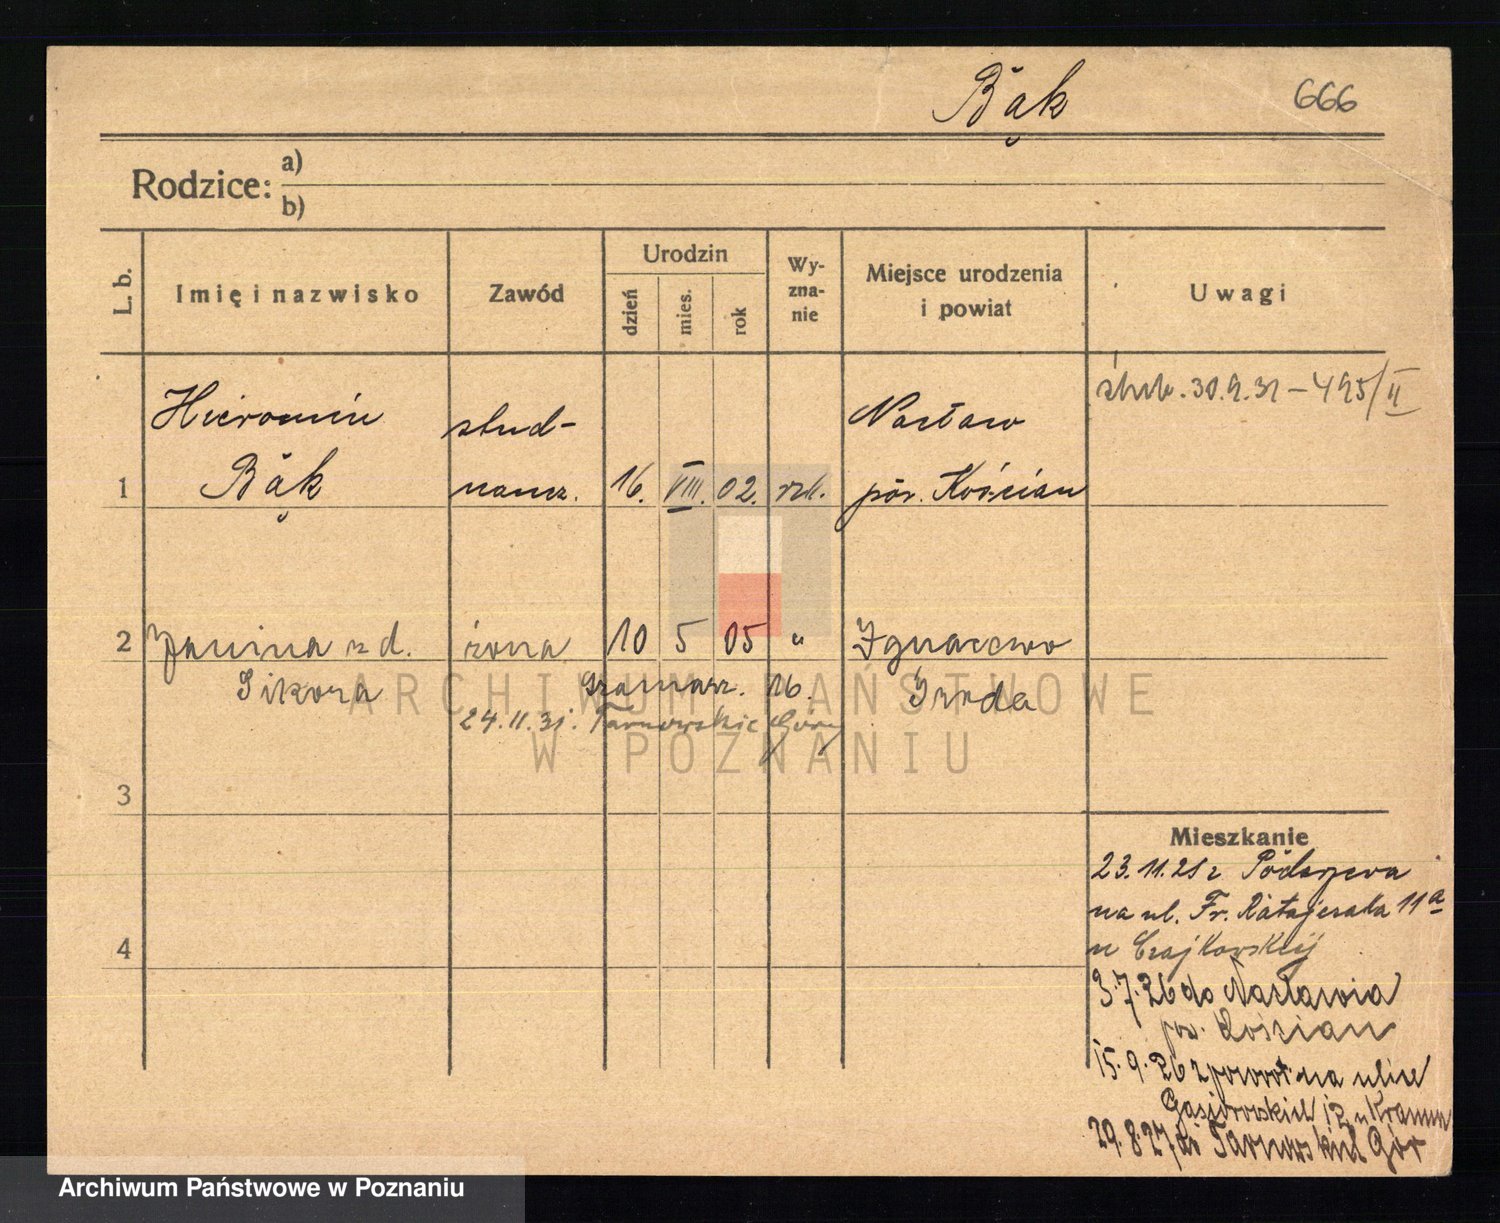 Bąk 666
Rodzice: a)
b)
L. b.
Imię i nazwisko
Zawód
Urodzin
dzień
mies.
rok
Wy-
zna-
nie
Miejsce urodzenia
i powiat
Uwagi
ślub. 30.9.31 – 495/II
Hieronim stud- Nacław
1 Bąk naucz. 16. VIII. 02. rzk. pow. Kościan
2 Janina z d. żona 10 5 05 " Ignacewo
Sikora 16. Środa
24.11.31. Tarnowskie Góry
3
4
Mieszkanie
23.11.25 z
na ul. Fr. Ratajczaka 11a
u Czajkowskiej
3.7.26 do Nacławia
pow. Kościan
15.9.26 z powrot. na ulice
Gąsiorowskich 12 u
29.8.27 do Tarnowskich Gór
ARCHIWUM PAŃSTWOWE
W POZNANIU
Archiwum Państwowe w Poznaniu